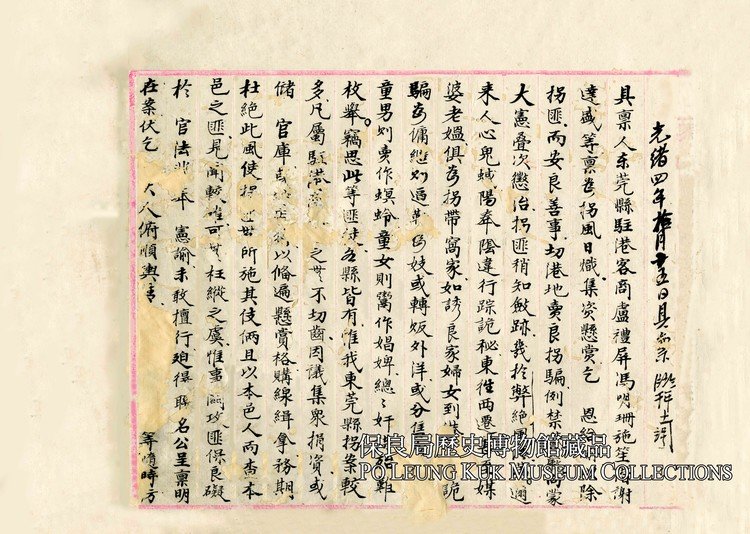 光緒四年拾月十五日具稟
具稟人东莞縣駐港客商盧禮屏馮明珊施笙謝
達盛等稟為拐風日熾集資懸賞乞 恩給除
拐匪而安良善事切港地賣良拐騙例禁蒙
大憲叠次懲治拐匪稍知斂跡幾於弊絕迴
來人心鬼蜮陽奉陰違行踪詭秘東徃西遷媒
婆老媼俱為拐帶窩家如誘良家婦女到詭
騙為傭継則逼為妓或轉販外洋或分售
童男則賣作螟蛉童女則鬻作娼婢總之奸難
枚舉竊思此等匪徒各縣皆有惟我東莞縣拐案較
多凡屬駐港之世不切齒因議集衆捐資或
儲 官庫以俻遍懸賞格購線緝拿務期
杜絕此風使拐匪世所施其伎倆且以本邑人而查本
邑之匪見聞較確可世枉縱之虞惟事攻匪保良礙
於 官法奉 憲諭未敢擅行廹得聯名公呈稟明
在案伏乞 大人俯順輿 等
保良局歷史博物館藏品
PO LEUNG KUK MUSEUM COLLECTIONS